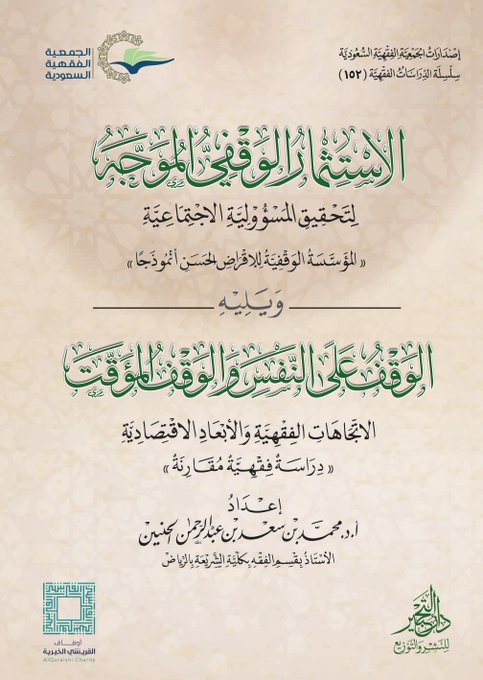 إصدارات الجمعية الفقهية السعودية
سلسلة الدراسات الفقهية (١٥٢)
الجمعية
الفقهية
السعودية
الاستثمار الوقفي الموجه
لِتَحْقِيقِ المَسْؤُوْلِيَّةِ الاجْتِمَاعِيَّةِ
« المُؤَسَّسَةُ الوَقْفِيَّةُ لِلإِقْرَاضِ الحَسَنِ أُنْمُوذَجًا »
وَيَلِيْهِ
الوَقْفُ عَلَى النَّفْسِ وَالوَقْفُ المُؤَقَّتُ
الاتِّجَاهَاتِ الفِقْهِيَّةِ وَالأَبْعَادِ الاقْتِصَادِيَّةِ
« دِرَاسَةٌ فِقْهِيَّةٌ مُقَارِنَةٌ »
إعْدَادُ
أ.د. محمد بن سعد بن عبد الرحمن الحنين
الأُسْتَاذُ بِقِسْمِ الفِقْهِ بِكُلِّيَّةِ الشَّرِيْعَةِ بِالرِّيَاضِ
دار التحبير
للنشر والتوزيع
أوقــاف
القريشي الخيرية
AlQuraishi Charity